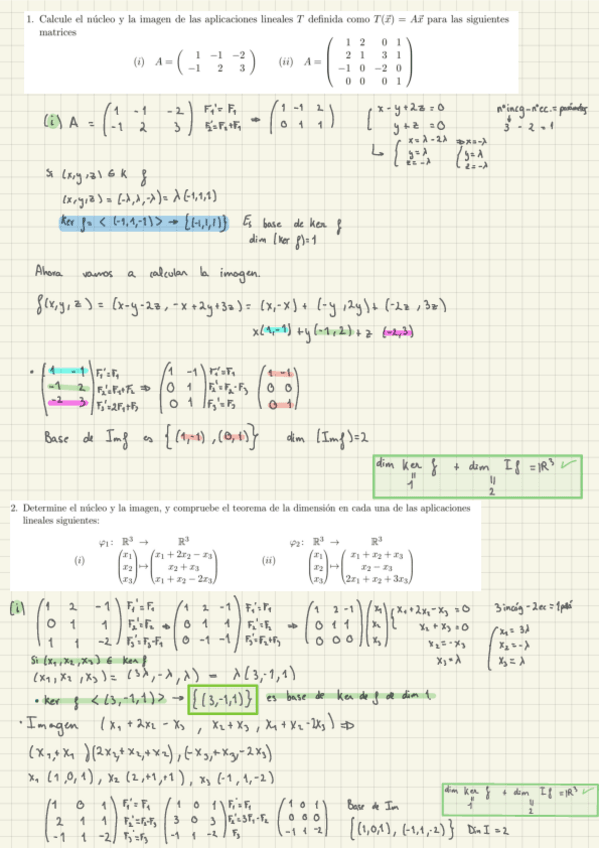 1. Calcule el núcleo y la imagen de las aplicaciones lineales T definida como T(x⃗) = Ax⃗ para las siguientes
matrices
(i) A = ( 1 −1 −2
−1 2 3 )
(ii) A = ( 1 2 0 1
2 1 3 1
−1 0 −2 0
0 0 0 1 )
(i) A = ( 1 -1 -2
-1 2 3 ) F₁'=F₁ F₂'=F₂+F₁ ⇒ ( 1 -1 2
0 1 1 )
{ x-y+2z=0
y+z=0
nºincg-nºec.=parámetros
3 - 2 = 1
↳ { x=λ-2λ ⇒ x=-λ
y=λ y=λ
z=-λ z=-λ
Si (x,y,z) ∈ k f
(x,y,z) = (-λ,λ,-λ) = λ(-1,1,1)
Ker f = <(-1,1,-1)> → {(-1,1,1)} Es base de ker f
dim (ker f)=1
Ahora vamos a calcular la imagen.
f(x,y,z) = (x-y-2z, -x+2y+3z) = (x,-x) + (-y,2y) + (-2z,3z)
x(1,-1) + y(-1,2) + z(-2,3)
• ( 1 -1
-1 2
-2 3 ) F₁'=F₁ F₂'=F₁+F₂ F₃'=2F₁+F₃ ⇒ ( 1 -1
0 1
0 1 ) F₁'=F₁ F₂'=F₂-F₃ F₃'=F₃ ( 1 -1
0 0
0 1 )
Base de Imf es {(1,-1),(0,1)} dim (Imf)=2
dim ker f + dim If = ℝ³ ✓
1 2
2. Determine el núcleo y la imagen, y compruebe el teorema de la dimensión en cada una de las aplicaciones
lineales siguientes:
(i) φ₁: ℝ³ → ℝ³
(x₁ x₂ x₃) ↦ (x₁ + 2x₂ − x₃
x₂ + x₃
x₁ + x₂ − 2x₃)
(ii) φ₂: ℝ³ → ℝ³
(x₁ x₂ x₃) ↦ (x₁ + x₂ + x₃
x₂ − x₃
2x₁ + x₂ + 3x₃)
(i) ( 1 2 -1
0 1 1
1 1 -2 ) F₁'=F₁ F₂'=F₂ F₃'=F₃-F₁ ⇒ ( 1 2 -1
0 1 1
0 -1 -1 ) F₁'=F₁ F₂'=F₂ F₃'=F₂+F₃ ⇒ ( 1 2 -1
0 1 1
0 0 0 ) (x₁ x₂ x₃)
{ x₁+2x₂-x₃=0
x₂+x₃=0
x₂=-x₃
x₃=λ
3 incóg - 2 ec = 1
{ x₁=3λ
x₂=-λ
x₃=λ
Si (x₁,x₂,x₃) ∈ ker f
(x₁,x₂,x₃) = (3λ,-λ,λ) = λ(3,-1,1)
• Ker f <(3,-1,1)> → {(3,-1,1)} es base de ker de f de dim 1.
• Imagen (x₁+2x₂-x₃, x₂+x₃, x₁+x₂-2x₃) ⇒
(x₁+x₁)(2x₂+x₂+x₂),(-x₃+x₃-2x₃)
x₁(1,0,1), x₂(2,+1,+1), x₃(-1,1,-2)
( 1 0 1
2 1 1
-1 1 -2 ) F₁'=F₁ F₂'=F₂-F₃ F₃'=F₃ ( 1 0 1
3 0 3
-1 1 -2 ) F₁'=F₁ F₂'=3F₁-F₂ F₃ ( 1 0 1
0 0 0
-1 1 -2 )
Base de Im
{(1,0,1),(-1,1,-2)} Dim I=2
dim ker f + dim If = ℝ³ ✓
1 2